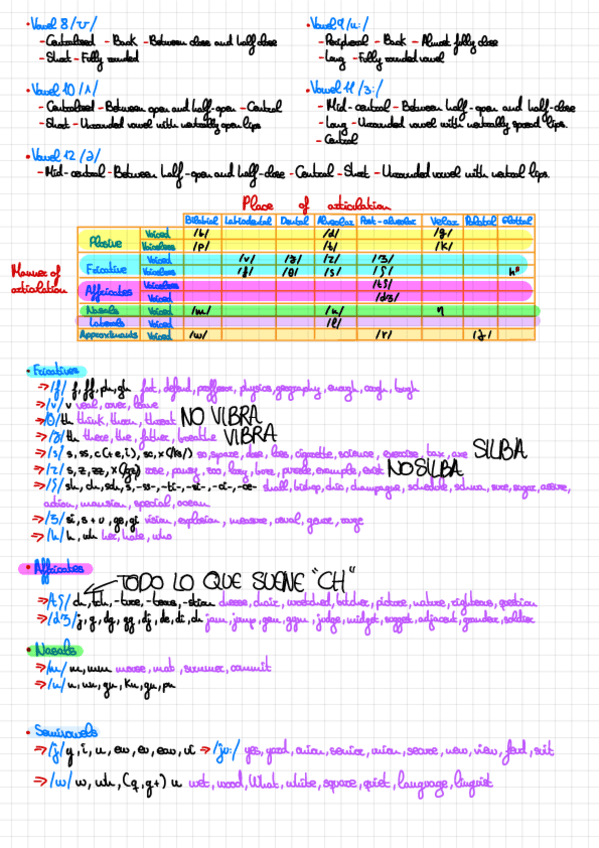 • Vowel 8 /ʊ/
- Centralized - Back - Between close and half close
- Short - Fully rounded
• Vowel 9 /u:/
- Peripheral - Back - Almost fully close
- Long - Fully rounded vowel
• Vowel 10 /ʌ/
- Centralized - Between open and half-open - Central
- Short - Unrounded vowel with neutrally open lips
• Vowel 11 /ɜ:/
- Mid-central - Between half-open and half-close
- Long - Unrounded vowel with neutrally spread lips.
- Central
• Vowel 12 /ə/
- Mid-central - Between half-open and half-close - Central - Short - Unrounded vowel with neutral lips.
Place of articulation
Bilabial Labiodental Dental Alveolar Post-alveolar Velar Palatal Glottal
Manner of articulation
Plosive Voiced /b/ /d/ /g/
Voiceless /p/ /t/ /k/
Fricative Voiced /v/ /ð/ /z/ /ʒ/
Voiceless /f/ /θ/ /s/ /ʃ/ h
Affricates Voiceless /tʃ/
Voiced /dʒ/
Nasals Voiced /m/ /n/ η
Laterals Voiced /l/
Approximants Voiced /w/ /r/ /j/
• Fricatives
⇒ /f/ f, ff, ph, gh foot, defend, professor, physics, geography, enough, cough, tough
⇒ /v/ v veal, cover, leave
⇒ /θ/ th think, thorn, threat NO VIBRA
⇒ /ð/ th there, the, father, breathe VIBRA
⇒ /s/ s, ss, c (+e, i), sc, x (/ks/) so, space, dose, loss, cigarette, science, exercise, tax, axe SILBA
⇒ /z/ s, z, zz, x (/gz/) rose, pansy, zoo, lazy, booz, puzzle, example, exist NO SILBA
⇒ /ʃ/ sh, ch, sch, s, -ss-, -ti-, -si-, -ci-, -ce- shall, bishop, chic, champagne, schedule, sure, sugar, assure,
action, mansion, special, ocean
⇒ /ʒ/ si, s + u, ge, gi vision, explosion, measure, usual, genre, rouge
⇒ /h/ h, wh her, hate, who
• Affricates
TODO LO QUE SUENE "CH"
⇒ /tʃ/ ch, tch, -ture, -teous, -stion cheese, chair, wretched, butcher, picture, nature, righteous, question
⇒ /dʒ/ j, g, dg, gg, dj, de, di, ch jam, jump, gem, gym, judge, midget, suggest, adjacent, grandeur, soldier
• Nasals
⇒ /m/ m, mm mouse, mob, summer, commit
⇒ /n/ n, nn, gn, kn, gn, pn
• Semivowels
⇒ /j/ y, i, u, ew, eu, eau, ui ⇒ /ju:/ yes, yard, onion, senior, union, secure, new, view, feud, suit
⇒ /w/ w, wh, (q, g+) u wet, wood, What, white, square, quiet, language, linguist